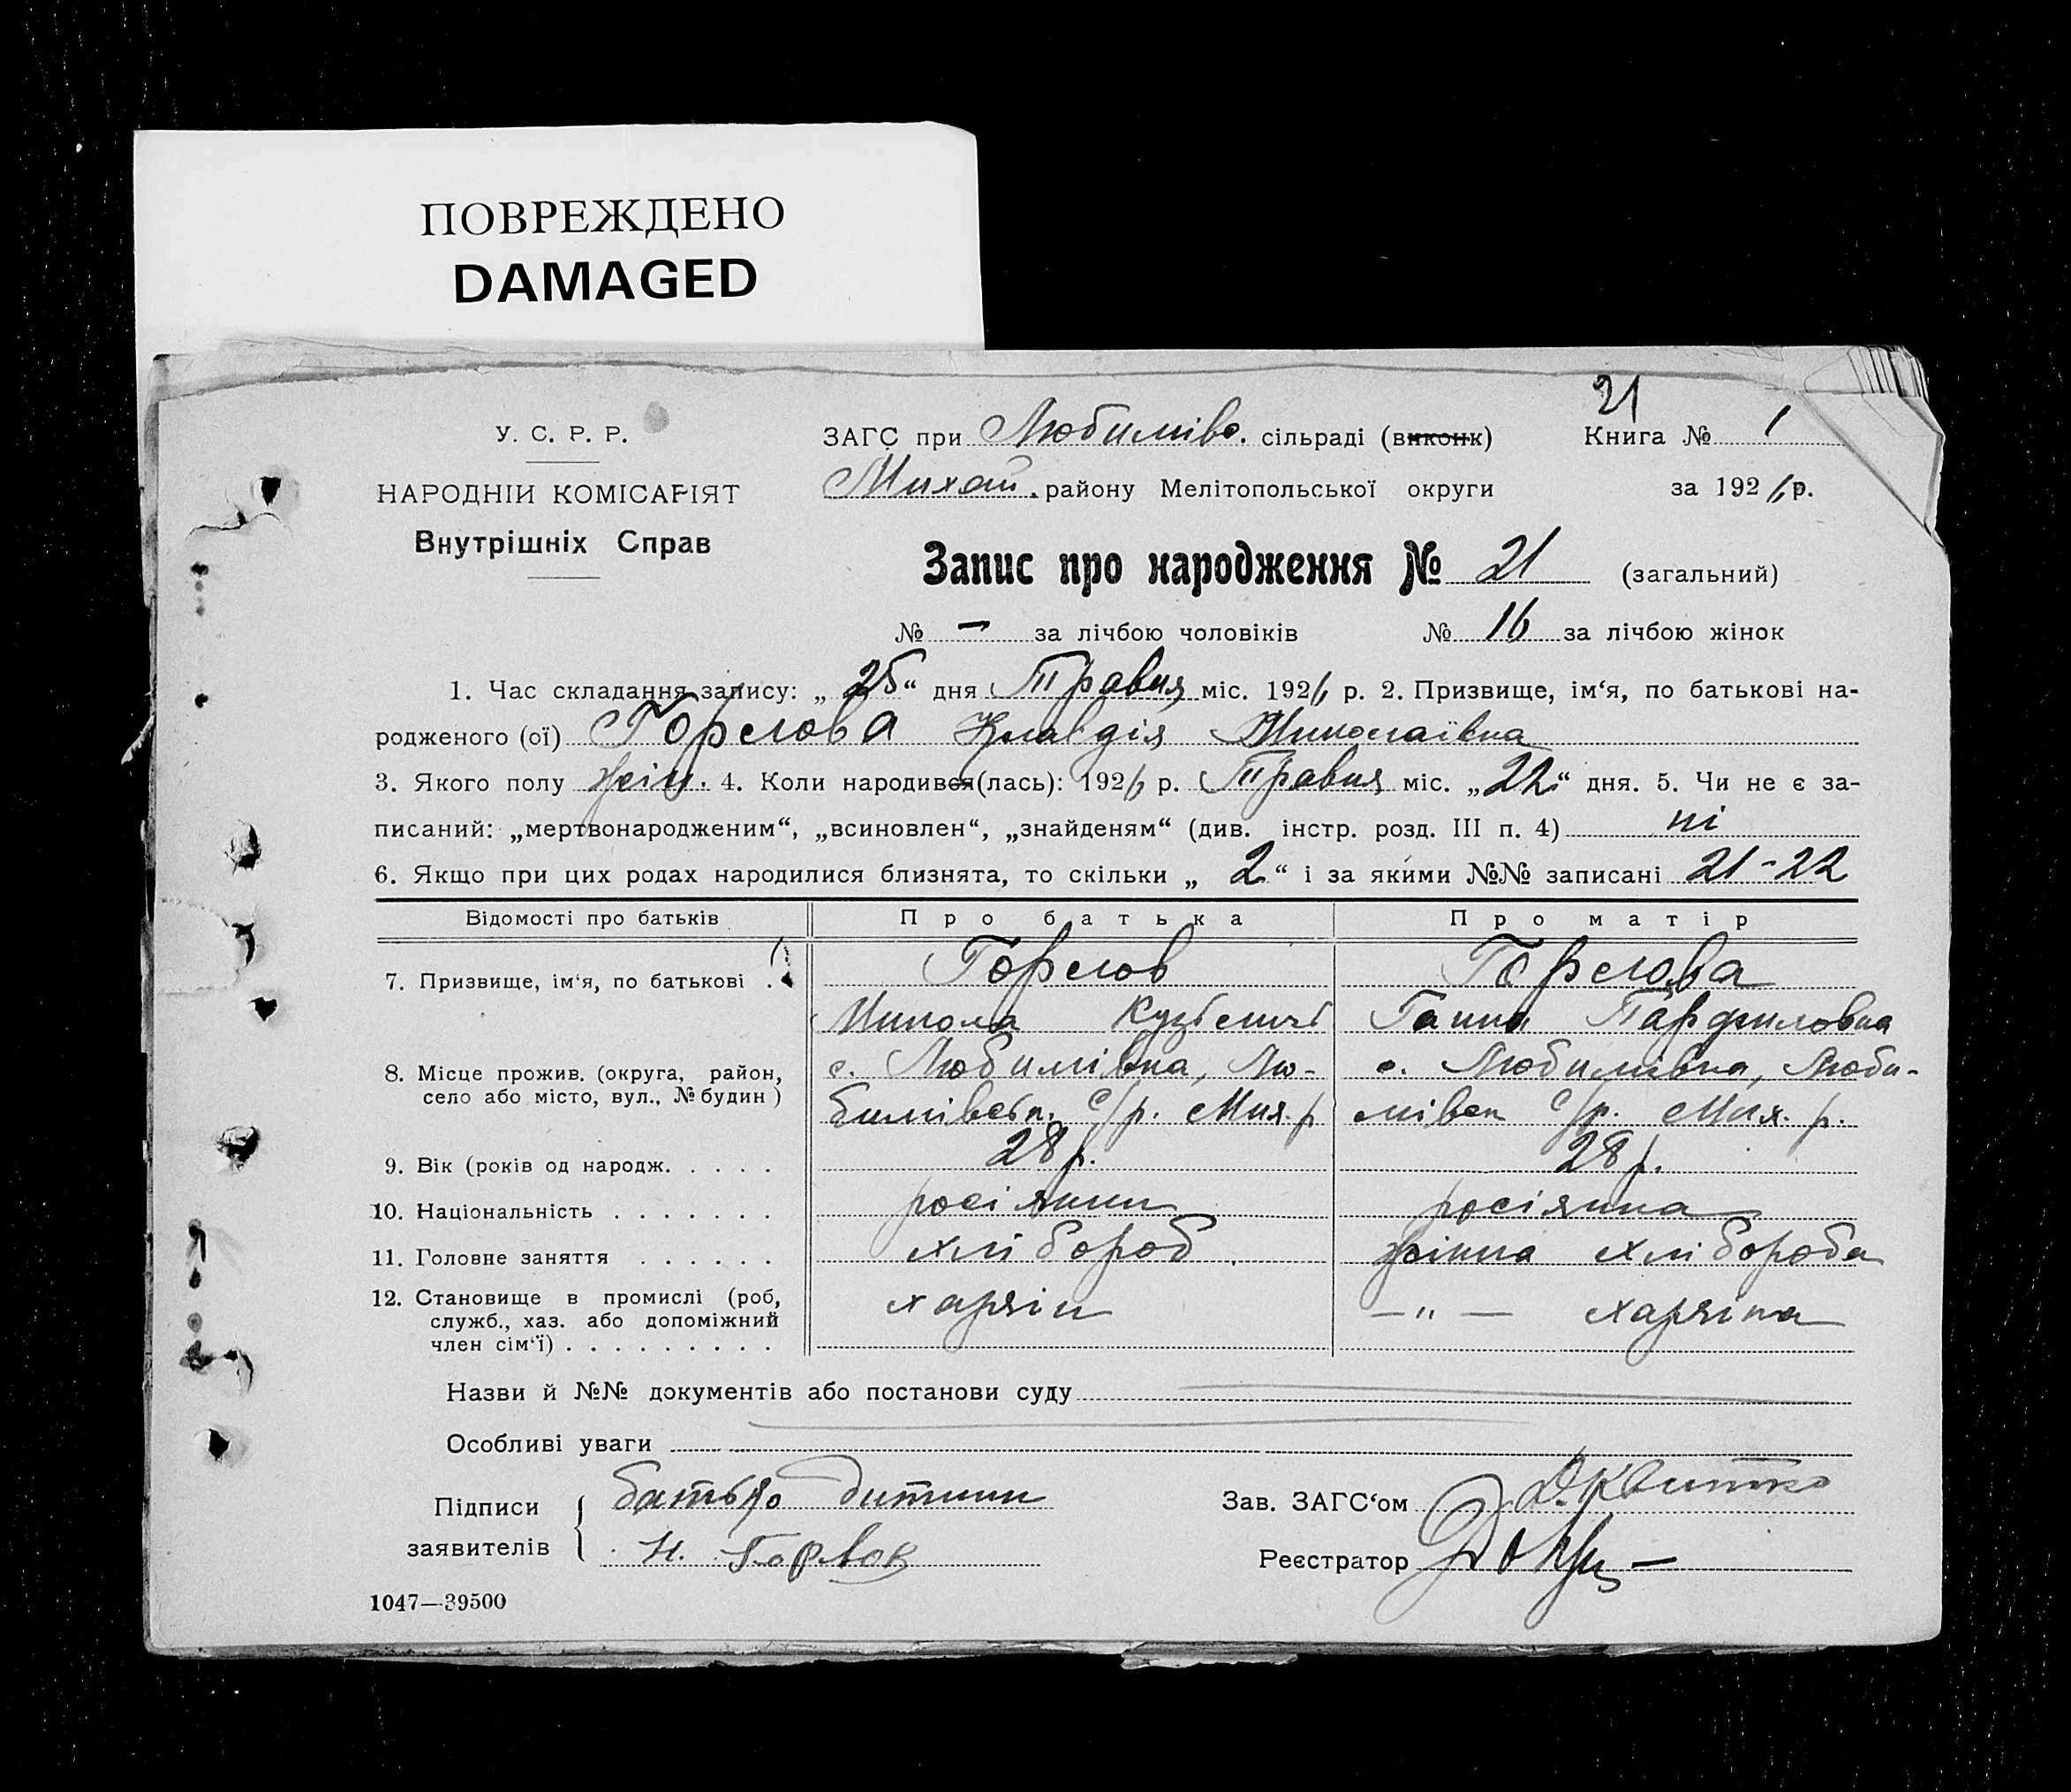 ПОВРЕЖДЕНО
DAMAGED
21
У. С. Р. Р.
НАРОДНІЙ КОМІСАРІЯТ
Внутрішніх Справ
ЗАГС при Любимівс. сільраді (виконк) Книга № 1
Михай. району Мелітопольської округи за 1926 р.
Запис про народження № 21 (загальний)
№ — за лічбою чоловіків № 16 за лічбою жінок
1. Час складання запису: „25“ дня Травня міс. 1926 р. 2. Призвище, ім‘я, по батькові на-
родженого (ої) Горелова Клавдія Миколаївна
3. Якого полу жін. 4. Коли народився(лась): 1926 р. Травня міс. „22“ дня. 5. Чи не є за-
писаний: „мертвонародженим“, „всиновлен“, „знайденям“ (див. інстр. розд. III п. 4) ні
6. Якщо при цих родах народилися близнята, то скільки „2“ і за якими №№ записані 21-22
Відомості про батьків Про батька Про матір
7. Призвище, ім‘я, по батькові . Горелов Горелова
Микола Кузьмичь Ганна Парфиловна
8. Місце прожив. (округа, район, село або місто, вул., № будин) с. Любимівка, Лю- с. Любимівка, Люби-
бимівськ. с/р. Мих. р мівск с/р. Мих. р.
9. Вік (років од народж. . . . . 28 р. 28 р.
10. Національність . . . . . . . росіянин росіянка
11. Головне заняття . . . . . . хлібороб жінка хлібороба
12. Становище в промислі (роб, служб., хаз. або допоміжний член сім‘ї) . . . . . . . . . харзіи — " — харзіна
Назви й №№ документів або постанови суду
Особливі уваги
Підписи заявителів батько дитини
Н. Горлов
Зав. ЗАГС‘ом Д. Квитко
Реєстратор
1047—39500